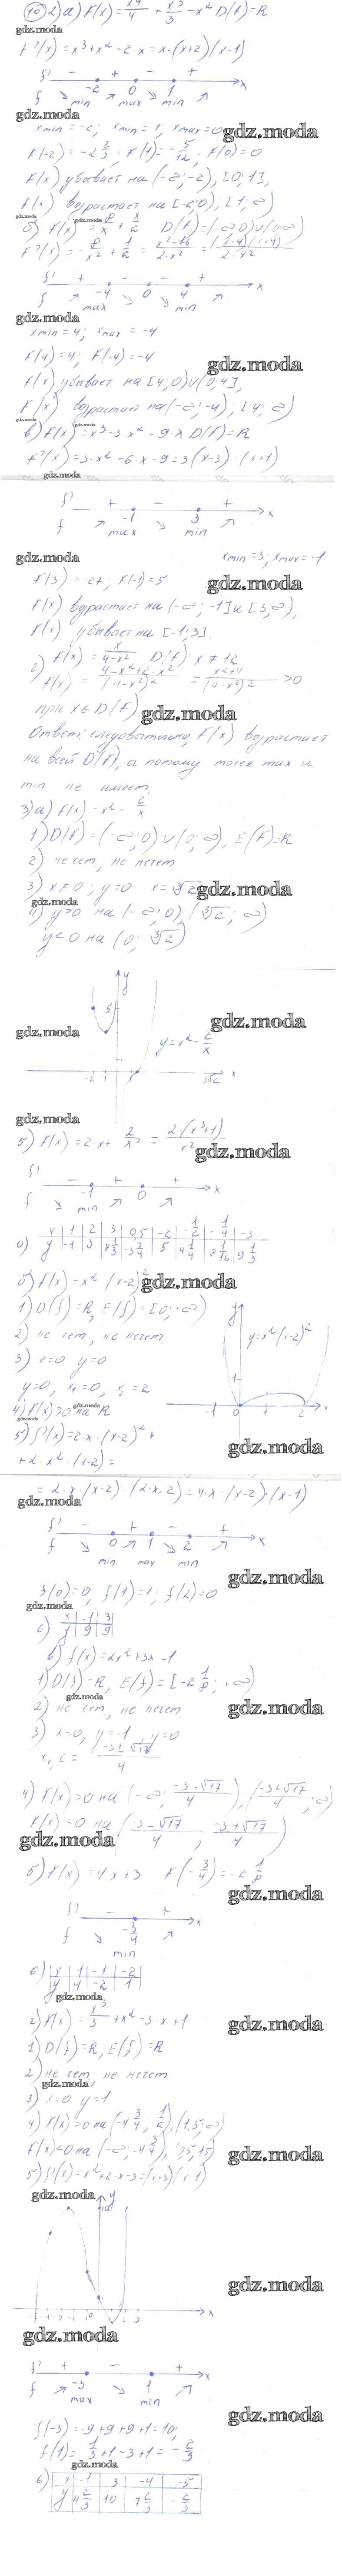 10 2) а) f(x) = x⁴/4 + x³/3 - x² D(f) = R
gdz.moda
f'(x) = x³ + x² - 2x = x·(x+2)(x-1)
f' - + - +
-2 0 1 x
f ↘ min ↗ max ↘ min ↗
gdz.moda
xmin = -2; xmin = 1; xmax = 0
gdz.moda
f(-2) = -2 2/3; f(1) = -5/12; f(0) = 0
f(x) убывает на (-∞; -2), [0; 1],
f(x) возрастает на [-2; 0], [1; ∞)
gdz.moda
gdz.moda
б) f(x) = 8/x + x/2 D(f) = (-∞; 0)∪(0; ∞)
f'(x) = -8/x² + 1/2 = x²-16/2·x² = (x-4)(x+4)/2·x²
f' + - - +
-4 0 4 x
f ↗ max ↘ ↘ min ↗
gdz.moda
xmin = 4; xmax = -4
f(4) = 4; f(-4) = -4
gdz.moda
f(x) убывает на [4; 0)∪(0; 4],
f(x) возрастает на (-∞; -4), [4; ∞)
gdz.moda
в) f(x) = x³ - 3x² - 9·x D(f) = R
f'(x) = 3·x² - 6·x - 9 = 3(x-3)(x+1)
gdz.moda
f' + - +
-1 3 x
f ↗ max ↘ min ↗
gdz.moda
xmin = 3; xmax = -1
f(3) = 27; f(-1) = 5
gdz.moda
f(x) возрастает на (-∞; -1] и [3; ∞),
f(x) убывает на [-1; 3].
г) f(x) = x/4-x² D(f) x ≠ ±2
f'(x) = 4-x²+2·x²/(4-x²)² = x²+4/(4-x²)² > 0
при x ∈ D(f)
gdz.moda
Ответ: следовательно, f(x) возрастает
на всей D(f), а потому точек max и
min не имеет.
3) а) f(x) = x² - 2/x
1) D(f) = (-∞; 0)∪(0; ∞), E(f) = R
2) не чет, не нечет
3) x ≠ 0; y = 0 x = ∛2
gdz.moda
gdz.moda
4) y > 0 на (-∞; 0), (∛2; ∞)
y < 0 на (0; ∛2)
y
5
gdz.moda
gdz.moda
y = x² - 2/x
-2 -1 1 ∛2 x
gdz.moda
5) f'(x) = 2·x + 2/x² = 2·(x³+1)/x²
gdz.moda
f' - + +
-1 0 x
f ↘ min ↗ ↗
6) x 1 2 3 0,5 -2 -1/2 -1/4 -3
y -1 3 8 1/3 -3 3/4 5 4 1/4 8 1/16 9 2/3
б) f(x) = x²(x-2)²
gdz.moda
1) D(f) = R, E(f) = [0; +∞)
2) не чет, не нечет
3) x = 0 y = 0
y = 0, x₁ = 0, x₂ = 2
y
y = x²(x-2)²
1
-1 0 2 x
4) f(x) ≥ 0 на R
gdz.moda
gdz.moda
5) f'(x) = 2·x·(x-2)² +
gdz.moda
+ 2·x²·(x-2) =
= 2·x·(x-2)·(2·x-2) = 4·x·(x-2)·(x-1)
gdz.moda
f' - + - +
0 1 2 x
f ↘ min ↗ max ↘ min ↗
gdz.moda
f(0) = 0, f(1) = 1; f(2) = 0
gdz.moda
6) x -1 3
y 9 9
в) f(x) = 2x² + 3x - 1
1) D(f) = R, E(f) = [-2 1/8; +∞)
gdz.moda
gdz.moda
2) не чет, не нечет
3) x = 0, y = -1 y = 0
x₁,₂ = -3±√17/4
4) f(x) > 0 на (-∞; -3-√17/4), (-3+√17/4; ∞)
f(x) < 0 на (-3-√17/4, -3+√17/4)
gdz.moda
5) f'(x) = 4x + 3 f(-3/4) = -2 1/8
gdz.moda
f' - +
-3/4 x
f ↘ min ↗
6) x 1 -1 -2
y 4 -2 1
gdz.moda
gdz.moda
г) f(x) = x³/3 + x² - 3·x + 1
1) D(f) = R, E(f) = R
2) не чет, не нечет
gdz.moda
3) x = 0 y = 1
4) f(x) > 0 на (-4 3/4; 1/2), (1,5; ∞)
f(x) < 0 на (-∞; -4 3/4), (0,5; 1,5)
gdz.moda
5) f'(x) = x² + 2·x - 3 = (x+3)(x-1)
gdz.moda
y
10
gdz.moda
1 2 3 x
gdz.moda
f' + - +
-3 1 x
f ↗ max ↘ min ↗
gdz.moda
f(-3) = -9 + 9 + 9 + 1 = 10;
f(1) = 1/3 + 1 - 3 + 1 = -2/3
gdz.moda
6) x -1 3 -4 -5
y 4 2/3 10 7 2/3 -2/3